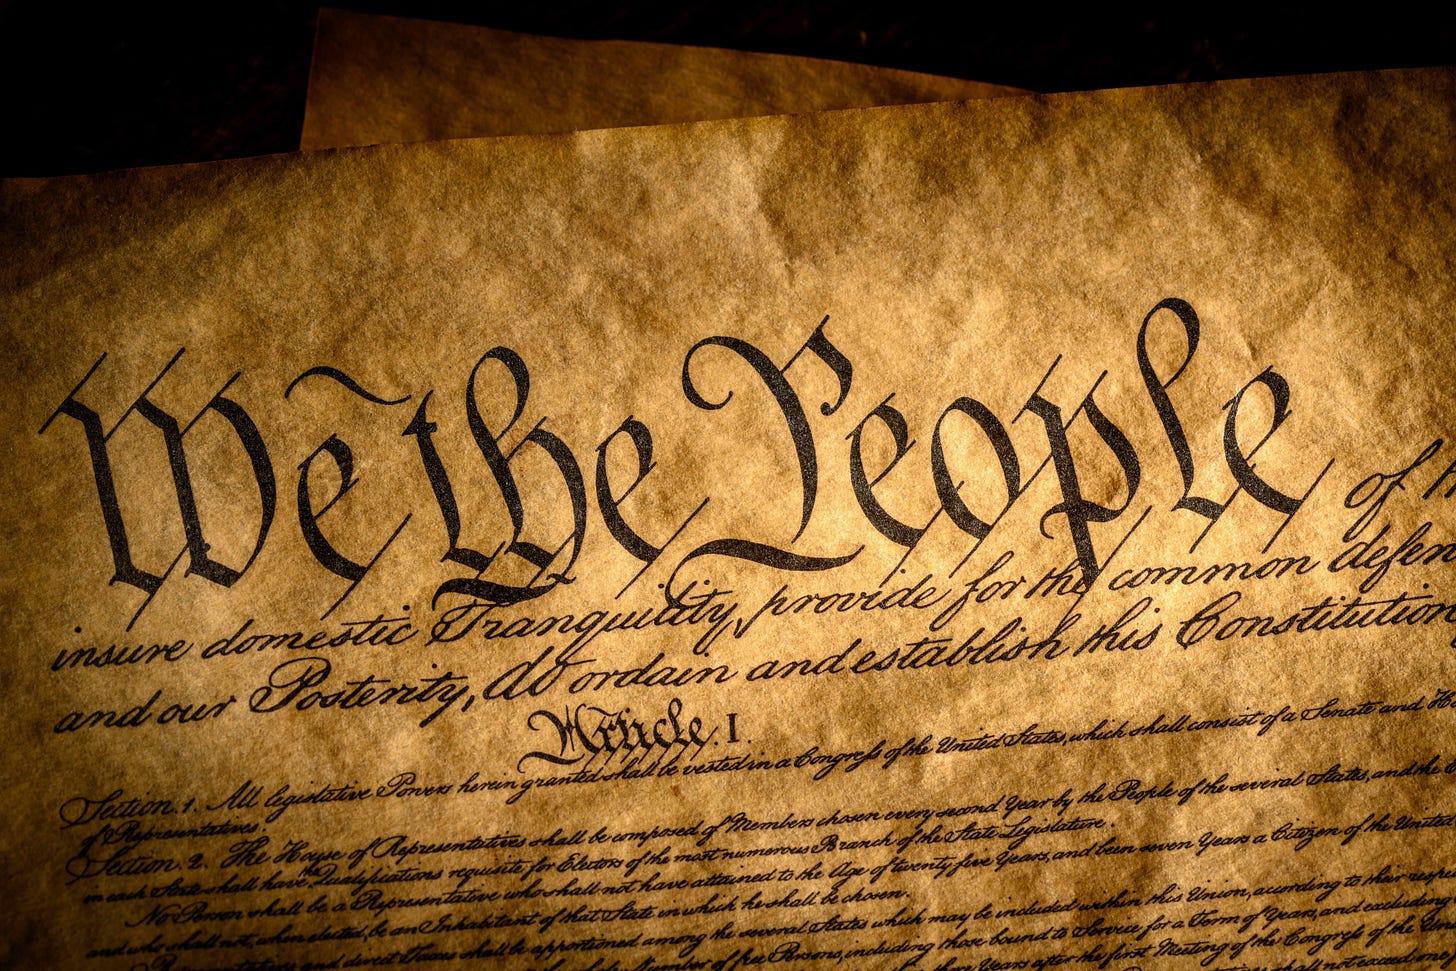 We the People of th
insure domestic Tranquility, provide for the common defen
and our Posterity, do ordain and establish this Constitution
Article. I.
Section. 1. All legislative Powers herein granted shall be vested in a Congress of the United States, which shall consist of a Senate and Ho
of Representatives.
Section. 2. The House of Representatives shall be composed of Members chosen every second Year by the People of the several States, and the E
in each State shall have the Qualifications requisite for Electors of the most numerous Branch of the State Legislature.
No Person shall be a Representative who shall not have attained to the Age of twenty five Years, and been seven Years a Citizen of the United
and who shall not, when elected, be an Inhabitant of that State in which he shall be chosen.
Representatives and direct Taxes shall be apportioned among the several States which may be included within this Union, according to their respe
Number of free Persons, including those bound to Service for a Term of Years, and excluding
three Years after the first Meeting of the Congress of the Un
shall not exceed one